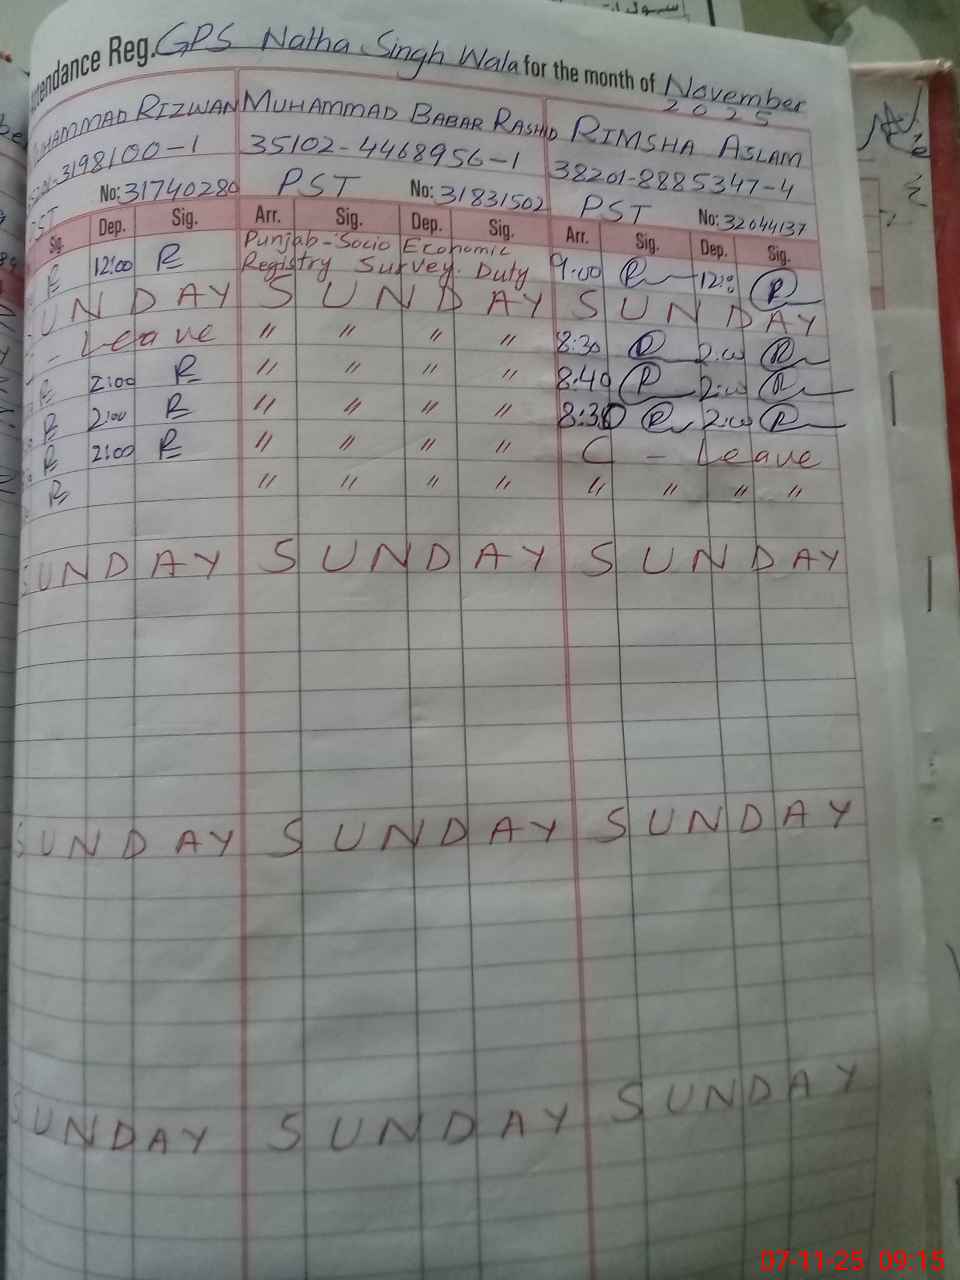 Attendance Reg. GPS Natha Singh Wala for the month of November
2025
MUHAMMAD RIZWAN MUHAMMAD BABAR RASHID RIMSHA ASLAM
3198100-1 35102-4468956-1 38201-8885347-4
PST No: 31740280 PST No: 31831502 PST No: 32044137
Sig. Dep. Sig. Arr. Sig. Dep. Sig. Arr. Sig. Dep. Sig.
R 12:00 R Punjab-Socio Economic Registry Survey Duty 9:00 R 12:00 R
SUNDAY SUNDAY SUNDAY
- Leave " " " " 8:30 R 2:00 R
R 2:00 R " " " " 8:40 R 2:00 R
R 2:00 R " " " " 8:30 R 2:00 R
R 2:00 R " " " " C - Leave
R " " " " " " " "
SUNDAY SUNDAY SUNDAY
SUNDAY SUNDAY SUNDAY
SUNDAY SUNDAY SUNDAY
07-11-25 09:15